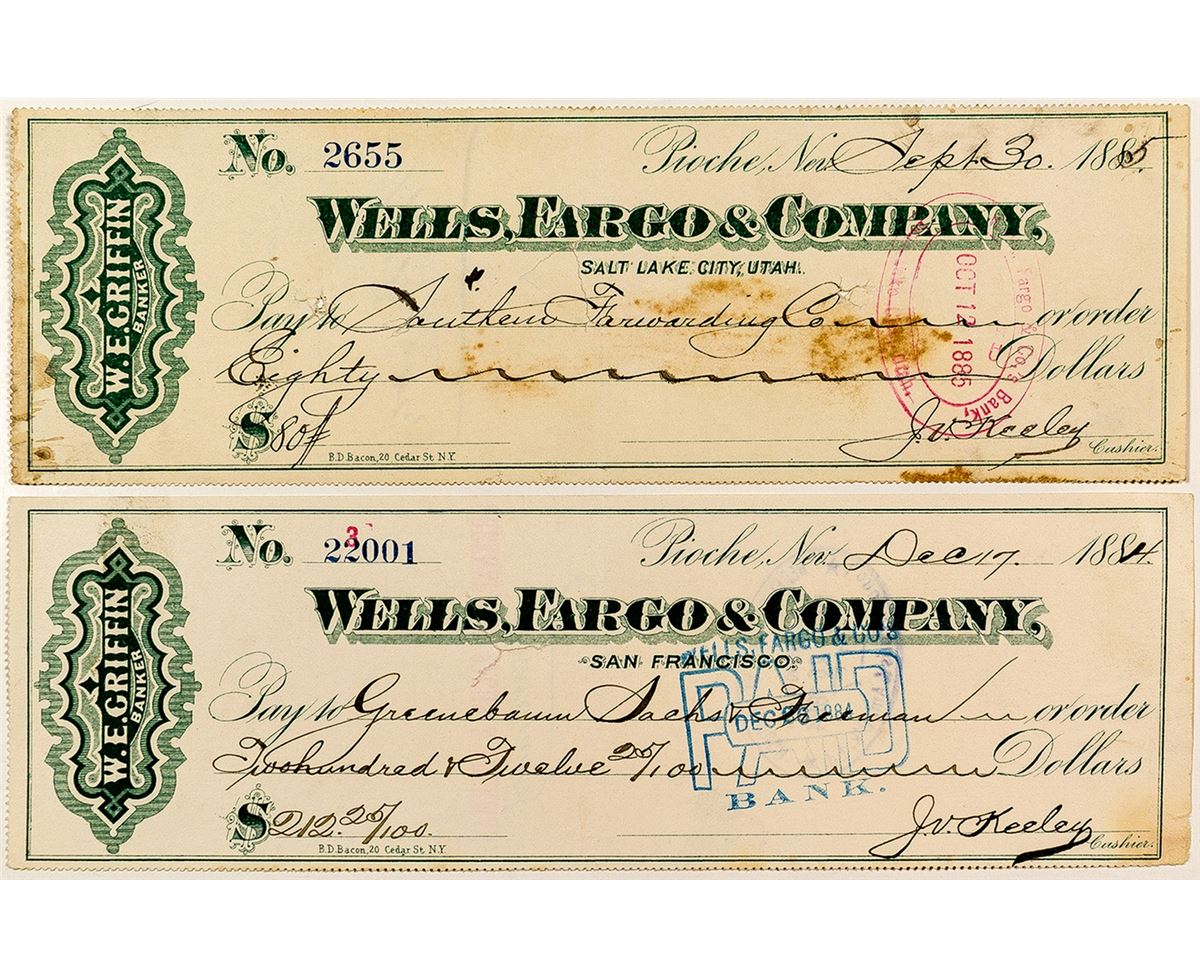 No. 2655 Pioche, Nev. Sept 30. 1885.
WELLS, FARGO & COMPANY,
SALT LAKE CITY, UTAH.
Pay to Southern Forwarding Co or order
Eighty Dollars
$ 80
J.V. Keeley
Cashier.
B.D. Bacon, 20 Cedar St. N.Y.
W. E. GRIFFIN
BANKER
Fargo & Co's Bank,
OCT 12 1885
Utah.
No. 22001 Pioche, Nev. Dec 17. 1884.
3
WELLS, FARGO & COMPANY,
SAN FRANCISCO.
Pay to Greenebaum Sachs & Freeman or order
Two hundred & Twelve 25/100 Dollars
$ 212. 25/100
J.V. Keeley
Cashier.
B.D. Bacon, 20 Cedar St. N.Y.
W. E. GRIFFIN
BANKER
WELLS, FARGO & CO'S
PAID
DEC 26 1884
BANK.